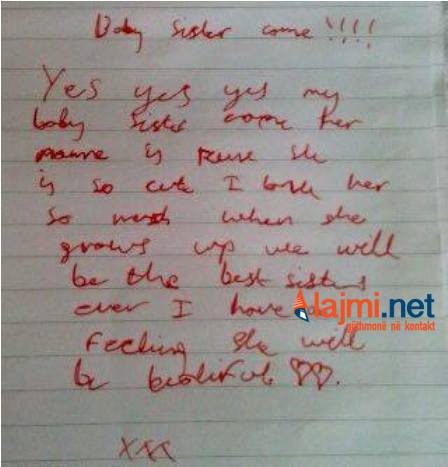 Baby Sister come !!!!
Yes yes yes my
baby sister come her
name is she
is so cute I love her
so much when she
grows up we will
be the best sisters
ever I have a
Feeling she will
be beatiful ♡♡.
xxx
lajmi.net
gjithmonë në kontakt